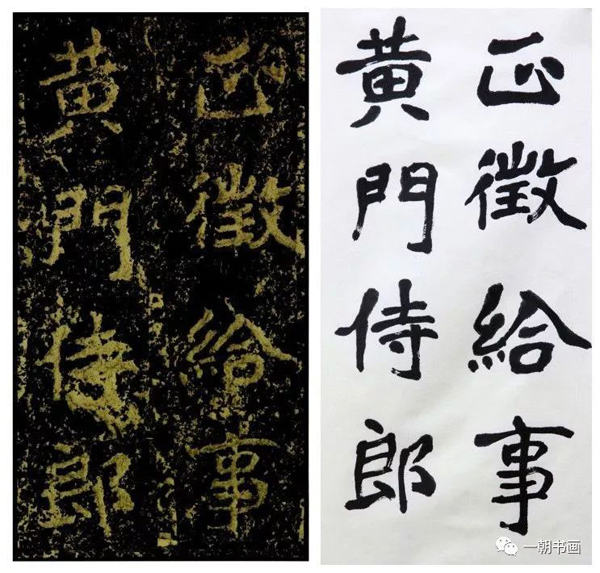 正徵給事
黃門侍郎
正徵給事
黃門侍郎
一朝书画